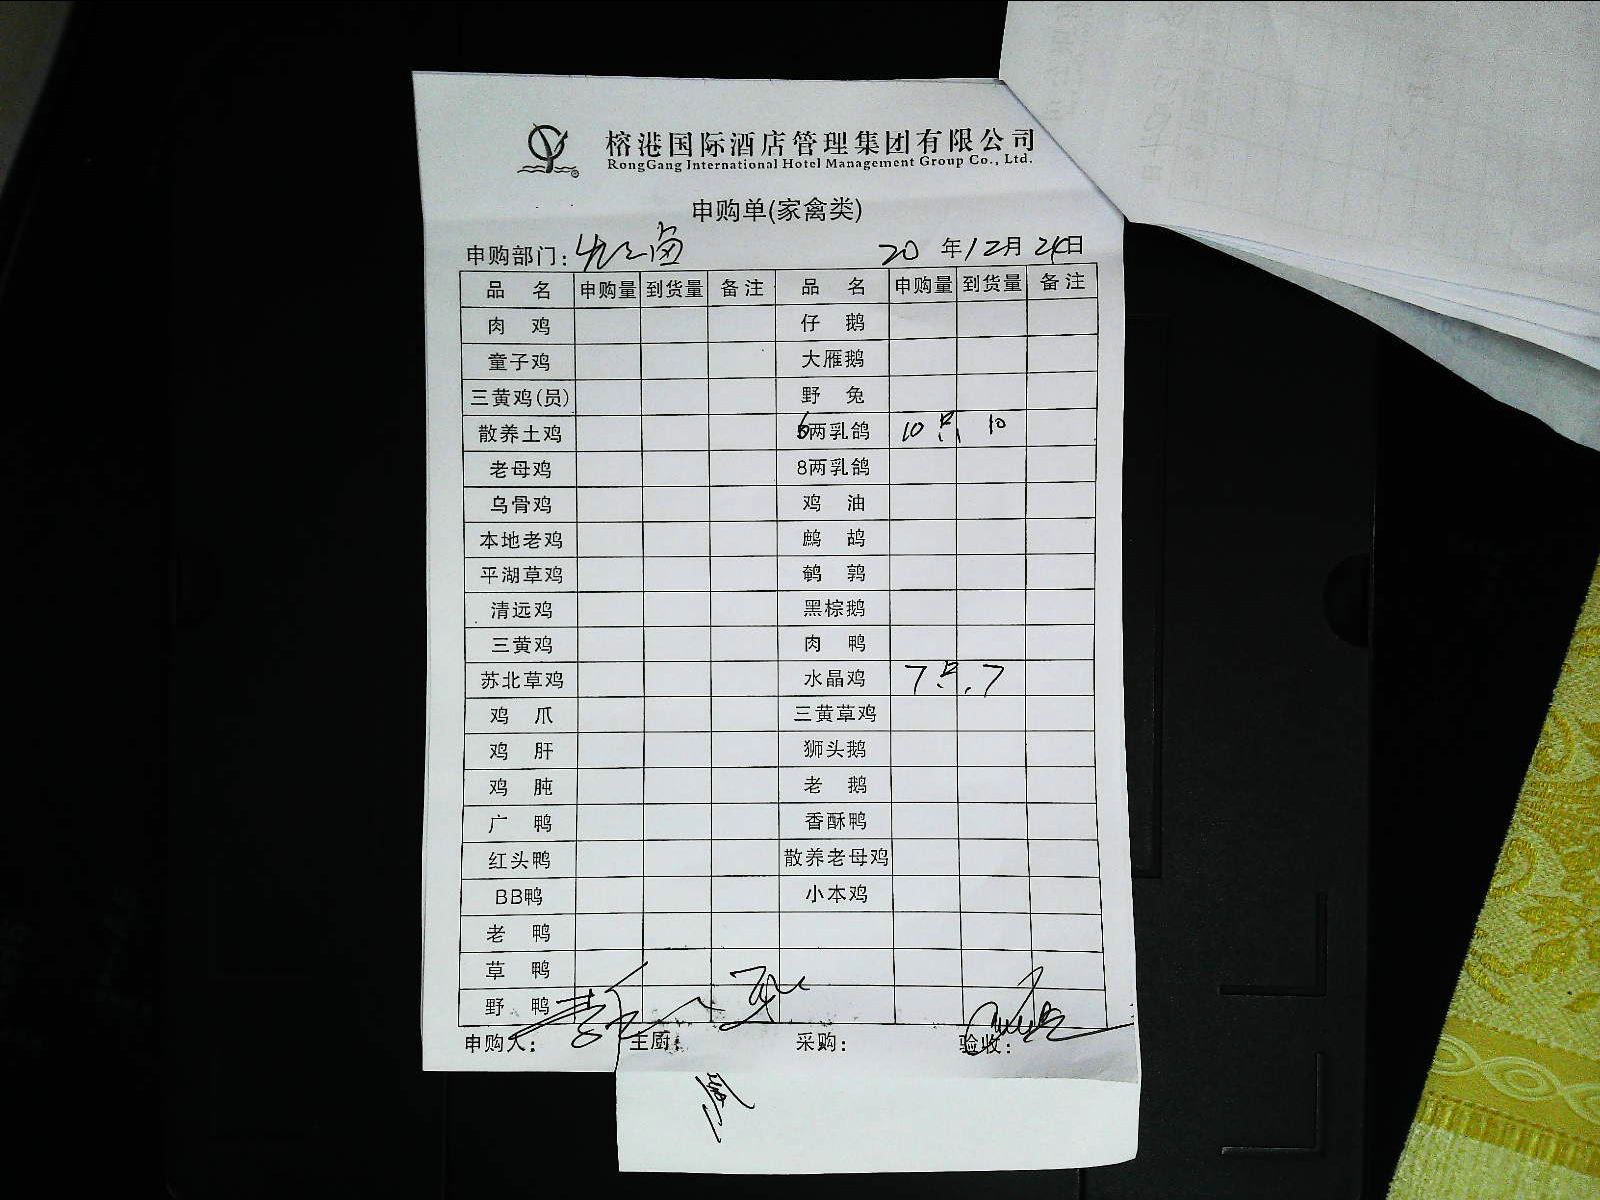 榕港国际酒店管理集团有限公司
RongGang International Hotel Management Group Co., Ltd.
申购单(家禽类)
申购部门: 20 年 12 月 24 日
品 名 申购量 到货量 备注 品 名 申购量 到货量 备注
肉 鸡 仔 鹅
童子鸡 大雁鹅
三黄鸡(员) 野 兔
散养土鸡 6两乳鸽 10只 10
老母鸡 8两乳鸽
乌骨鸡 鸡 油
本地老鸡 鹧 鸪
平湖草鸡 鹌 鹑
清远鸡 黑棕鹅
三黄鸡 肉 鸭
苏北草鸡 水晶鸡 7只. 7
鸡 爪 三黄草鸡
鸡 肝 狮头鹅
鸡 肫 老 鹅
广 鸭 香酥鸭
红头鸭 散养老母鸡
BB鸭 小本鸡
老 鸭
草 鸭
野 鸭
申购人: 主厨: 采购: 验收: